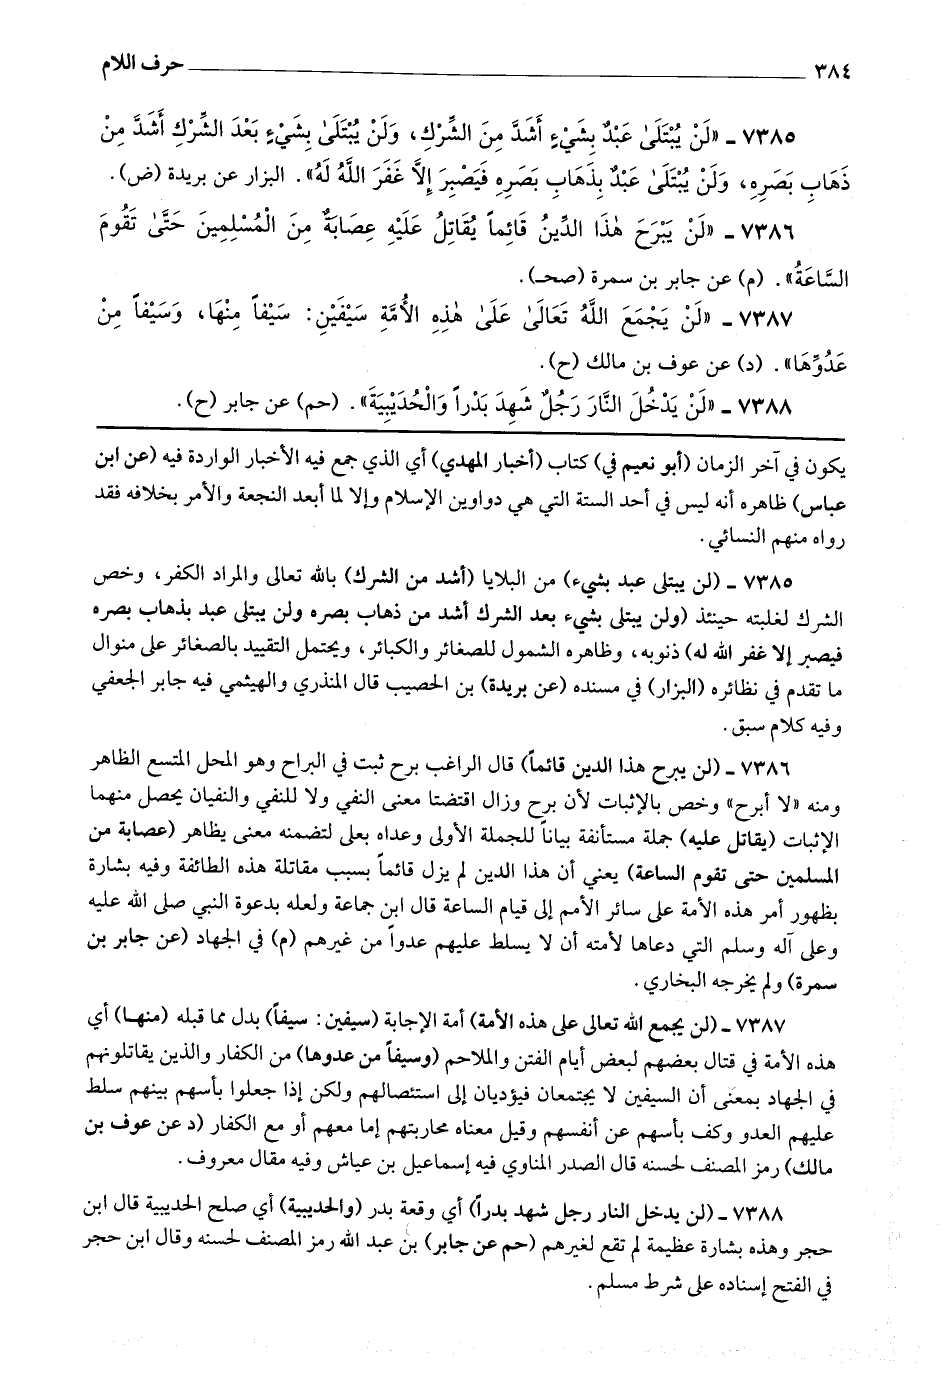 ٣٨٤ حرف اللام
٧٣٨٥ ـ «لَنْ يُبْتَلَىٰ عَبْدٌ بِشَيْءٍ أَشَدَّ مِنَ الشِّرْكِ، وَلَنْ يُبْتَلَىٰ بِشَيْءٍ بَعْدَ الشِّرْكِ أَشَدَّ مِنْ
ذَهَابِ بَصَرِهِ، وَلَنْ يُبْتَلَىٰ عَبْدٌ بِذَهَابِ بَصَرِهِ فَيَصْبِرَ إِلاَّ غَفَرَ اللَّهُ لَهُ». البزار عن بريدة (ض).
٧٣٨٦ ـ «لَنْ يَبْرَحَ هٰذَا الدِّينُ قَائِماً يُقَاتِلُ عَلَيْهِ عِصَابَةٌ مِنَ الْمُسْلِمِينَ حَتَّىٰ تَقُومَ
السَّاعَةُ». (م) عن جابر بن سمرة (صحـ).
٧٣٨٧ ـ «لَنْ يَجْمَعَ اللَّهُ تَعَالَىٰ عَلَىٰ هٰذِهِ الأُمَّةِ سَيْفَيْنِ: سَيْفاً مِنْهَا، وَسَيْفاً مِنْ
عَدُوِّهَا». (د) عن عوف بن مالك (ح).
٧٣٨٨ ـ «لَنْ يَدْخُلَ النَّارَ رَجُلٌ شَهِدَ بَدْراً وَالْحُدَيْبِيَةَ». (حم) عن جابر (ح).
يكون في آخر الزمان (أبو نعيم في) كتاب (أخبار المهدي) أي الذي جمع فيه الأخبار الواردة فيه (عن ابن
عباس) ظاهره أنه ليس في أحد الستة التي هي دواوين الإسلام وإلا لما أبعد النجعة والأمر بخلافه فقد
رواه منهم النسائي.
٧٣٨٥ ـ (لن يبتلى عبد بشيء) من البلايا (أشد من الشرك) بالله تعالى والمراد الكفر، وخص
الشرك لغلبته حينئذ (ولن يبتلى بشيء بعد الشرك أشد من ذهاب بصره ولن يبتلى عبد بذهاب بصره
فيصبر إلا غفر الله له) ذنوبه، وظاهره الشمول للصغائر والكبائر، ويحتمل التقييد بالصغائر على منوال
ما تقدم في نظائره (البزار) في مسنده (عن بريدة) بن الحصيب قال المنذري والهيثمي فيه جابر الجعفي
وفيه كلام سبق.
٧٣٨٦ ـ (لن يبرح هذا الدين قائماً) قال الراغب برح ثبت في البراح وهو المحل المتسع الظاهر
ومنه «لا أبرح» وخص بالإثبات لأن برح وزال اقتضتا معنى النفي ولا للنفي والنفيان يحصل منهما
الإثبات (يقاتل عليه) جملة مستأنفة بياناً للجملة الأولى وعداه بعلى لتضمنه معنى يظاهر (عصابة من
المسلمين حتى تقوم الساعة) يعني أن هذا الدين لم يزل قائماً بسبب مقاتلة هذه الطائفة وفيه بشارة
بظهور أمر هذه الأمة على سائر الأمم إلى قيام الساعة قال ابن جماعة ولعله بدعوة النبي صلى الله عليه
وعلى آله وسلم التي دعاها لأمته أن لا يسلط عليهم عدواً من غيرهم (م) في الجهاد (عن جابر بن
سمرة) ولم يخرجه البخاري.
٧٣٨٧ ـ (لن يجمع الله تعالى على هذه الأمة) أمة الإجابة (سيفين: سيفاً) بدل مما قبله (منهـا) أي
هذه الأمة في قتال بعضهم لبعض أيام الفتن والملاحم (وسيفاً من عدوها) من الكفار والذين يقاتلونهم
في الجهاد بمعنى أن السيفين لا يجتمعان فيؤديان إلى استئصالهم ولكن إذا جعلوا بأسهم بينهم سلط
عليهم العدو وكف بأسهم عن أنفسهم وقيل معناه محاربتهم إما معهم أو مع الكفار (د عن عوف بن
مالك) رمز المصنف لحسنه قال الصدر المناوي فيه إسماعيل بن عياش وفيه مقال معروف.
٧٣٨٨ ـ (لن يدخل النار رجل شهد بدراً) أي وقعة بدر (والحديبية) أي صلح الحديبية قال ابن
حجر وهذه بشارة عظيمة لم تقع لغيرهم (حم عن جابر) بن عبد الله رمز المصنف لحسنه وقال ابن حجر
في الفتح إسناده على شرط مسلم.